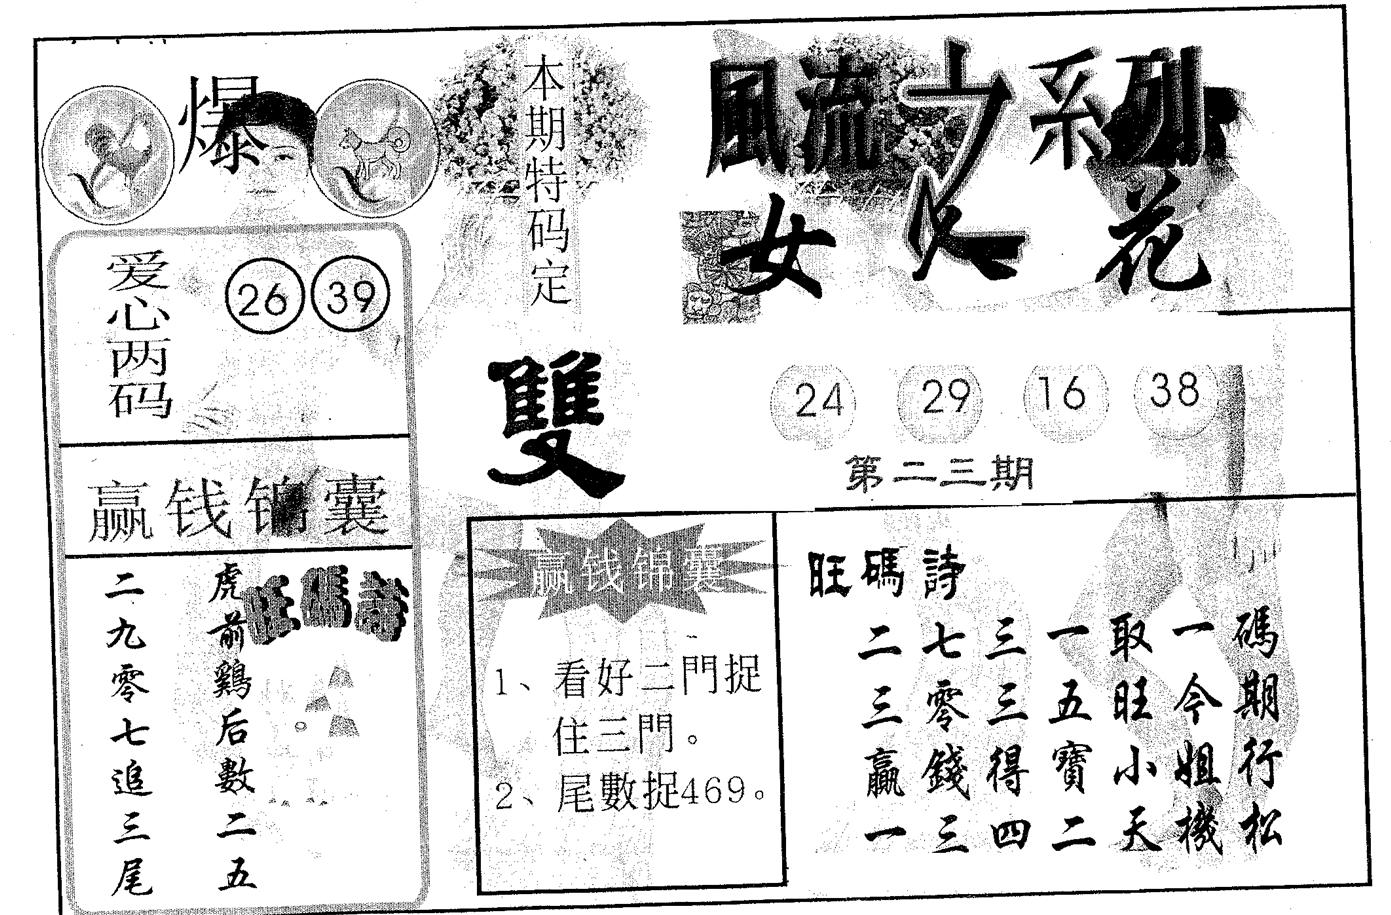 爆
本期特码定
雙
風流之系列
女人花
爱心两码
26 39
24 29 16 38
第二三期
赢钱锦囊
旺碼詩
虎前鷄后數二五
二九零七追三尾
赢钱锦囊
1、看好二門捉
住三門。
2、尾數捉469。
旺碼詩
二七三一取一碼
三零三五旺今期
贏錢得寶小姐行
一三四二天機松